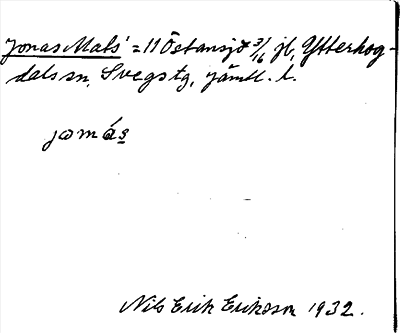 Jonas Mats' = 11 Östansjö 3/16 jb, Ytterhog-
dals sn, Svegs tg, Jämtl. l.
jomås
Nils Erik Erikson 1932.